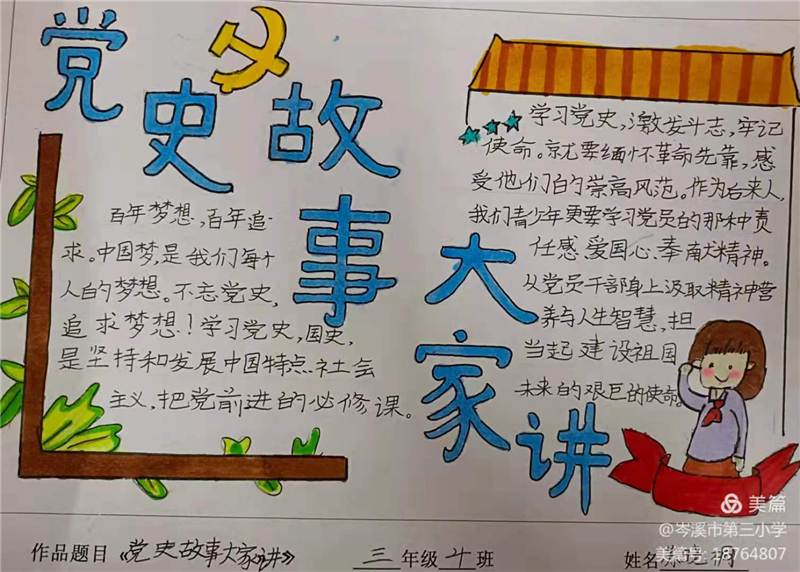 党史故事
大家讲
百年梦想，百年追
求。中国梦，是我们每个
人的梦想。不忘党史，
追求梦想！学习党史，国史，
是坚持和发展中国特点社会
主义，把党前进的必修课。
学习党史，激发斗志，牢记
使命。就要缅怀革命先靠，感
受他们的崇高风范。作为后来人，
我们青少年更要学习党员的那种责
任感、爱国心、奉献精神。
从党员干部身上汲取精神营
养与人生智慧，担
当起建设祖国
未来的艰巨的使命。
作品题目《党史故事大家讲》 三年级 班 姓名
美篇
@岑溪市第三小学
美篇号：18764807